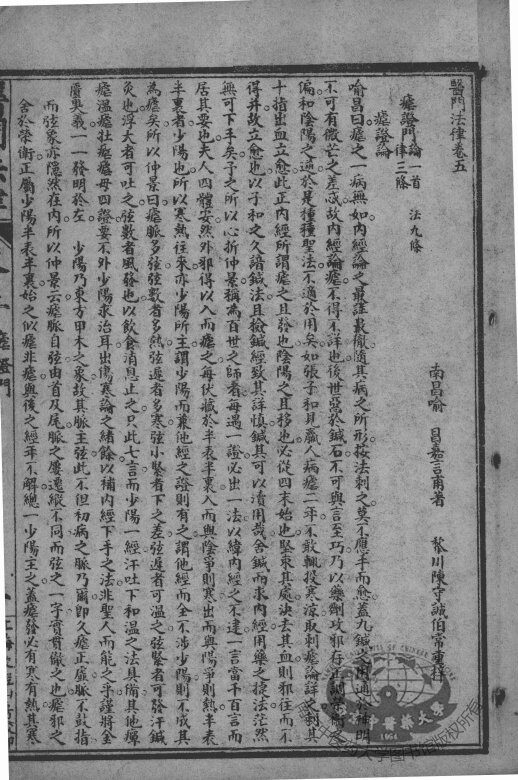 醫門法律卷五
南昌喻 昌嘉言甫著 黎川陳守誠伯常重梓
瘧證門論一首 法九條
律三條
瘧證論
喻昌曰瘧之一病無如內經論之最詳最徹隨其病之所形按法刺之莫不應手而愈蓋九鍼之用通於神明
不可有微芒之差忒故內經論瘧不得不詳也後世惡於鍼石不可與言至巧乃以藥劑攻邪存正調
偏和陰陽之適於是種種聖法不適於用矣如張子和見羸人病瘧二年不敢輒投寒涼取刺瘧論詳之刺其
十指出血立愈此正內經所謂瘧之且發也陰陽之且移也必從四末始也堅束其處決去其血則邪往而不
得并故立愈也以子和之久諳鍼法且檢鍼經致其詳慎鍼其可以漬用哉舍鍼而求內經用藥之捷法茫然
無可下手矣予之所以心折仲景稱為百世之師者每遇一證必出一法以緯內經之不逮一言當千百言而
居其要也夫人四體安然外邪得以入而瘧之每伏藏於半表半裏入而與陰爭則寒出而與陽爭則熱半表
半裏者少陽也所以寒熱往來亦少陽所主謂少陽而兼他經之證則有之謂他經而全不涉少陽則不成其
為瘧矣所以仲景曰瘧脈多弦弦數者多熱弦遲者多寒弦小緊者下之差弦遲者可溫之弦緊者可發汗鍼
灸也浮大者可吐之弦數者風發也以飲食消息止之只此七言而少陽一經汗吐下和溫之法具備其他癉
瘧溫瘧牡瘧瘧母四證要不外少陽求治耳出傷寒論之緒餘以補內經下手之法非聖人而能之乎謹將金
匱奧義一一發明於左 少陽乃東方甲木之象故其脈主弦此不但初病之脈乃爾即久瘧正虛脈不鼓指
而弦象亦隱然在內所以仲景云瘧脈自弦由首及尾脈之屢遷縱不同而弦之一字實貫徹之也瘧邪之
舍於榮衛正屬少陽半表半裏始之似瘧非瘧與後之經年不解總一少陽主之蓋瘧發必有寒有熱其寒